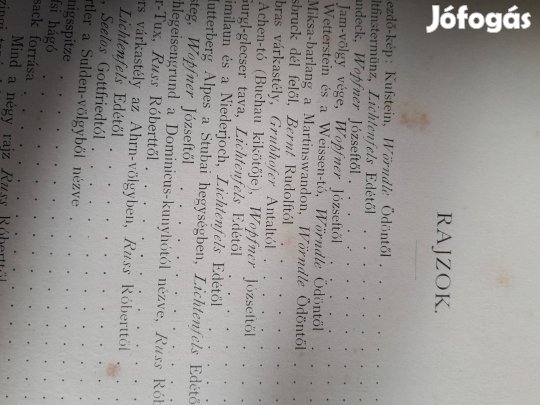 Jófogás
RAJZOK.
ezdő-kép: Kufstein, Wörndle Ödöntől
ltfinstermünz, Lichtenfels Edétől
undeck, Wopfner Józseftől
Jam-völgy vége, Wopfner Józseftől
Wetterstein és a Weissen-tó, Wörndle Ödöntől
Miksa-barlang a Martinswandon, Wörndle Ödöntől
sbruck dél felől, Bernt Rudolftól
bras várkastély, Grubhofer Antaltól
Achen-tó (Buchau kikötője), Wopfner Józseftől
urgl-glecser tava, Lichtenfels Edétől
imilaun és a Niederjoch, Lichtenfels Edétől
utterberg Alpes a Stubai hegységben, Lichtenfels Edétő
steg, Wopfner Józseftől
hlegesengrund a Dominicus-kunyhótól nézve, Russ Rób
r-Tux, Russ Róberttől
rs várkastély az Ahrn-völgyben, Russ Róberttől
Lichtenfels Edétől
, Seelos Gottfriedtől
rtler a Sulden-völgyből nézve
nigsspitze
fsi hágó
sack forrása
Mind a négy rajz Russ Róberttől